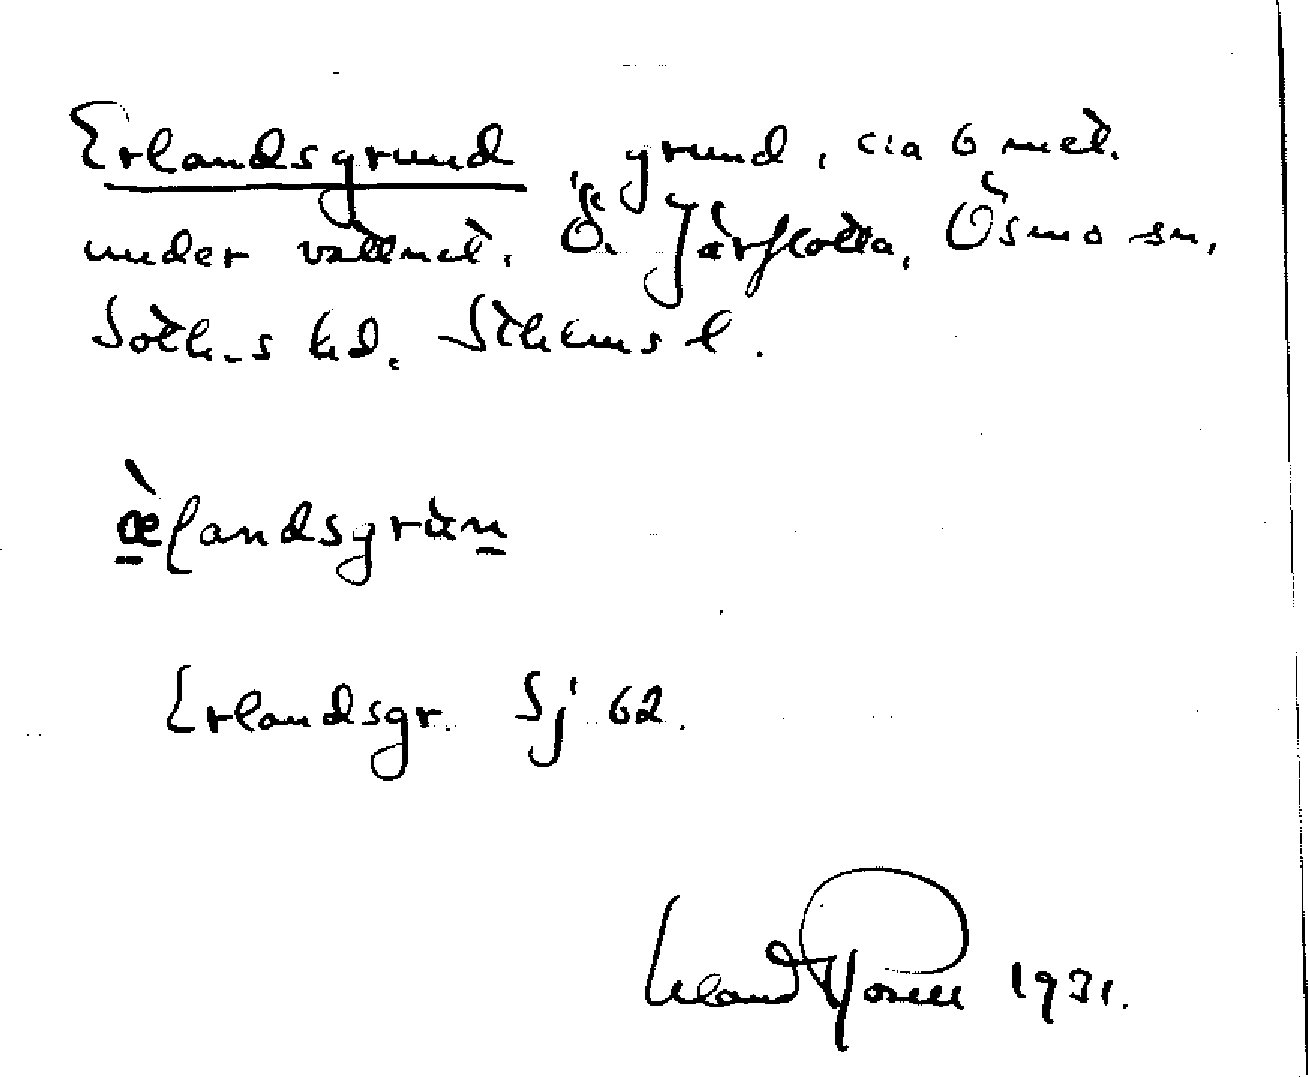 Erlandsgrund grund, c:a 6 met.
under vattnet. Ö. Järflotta, Ösmo sn,
Soth-s hd. Sthlms l.
æ̀landsgrùn
Erlandsgr. Sj 62.
1931.